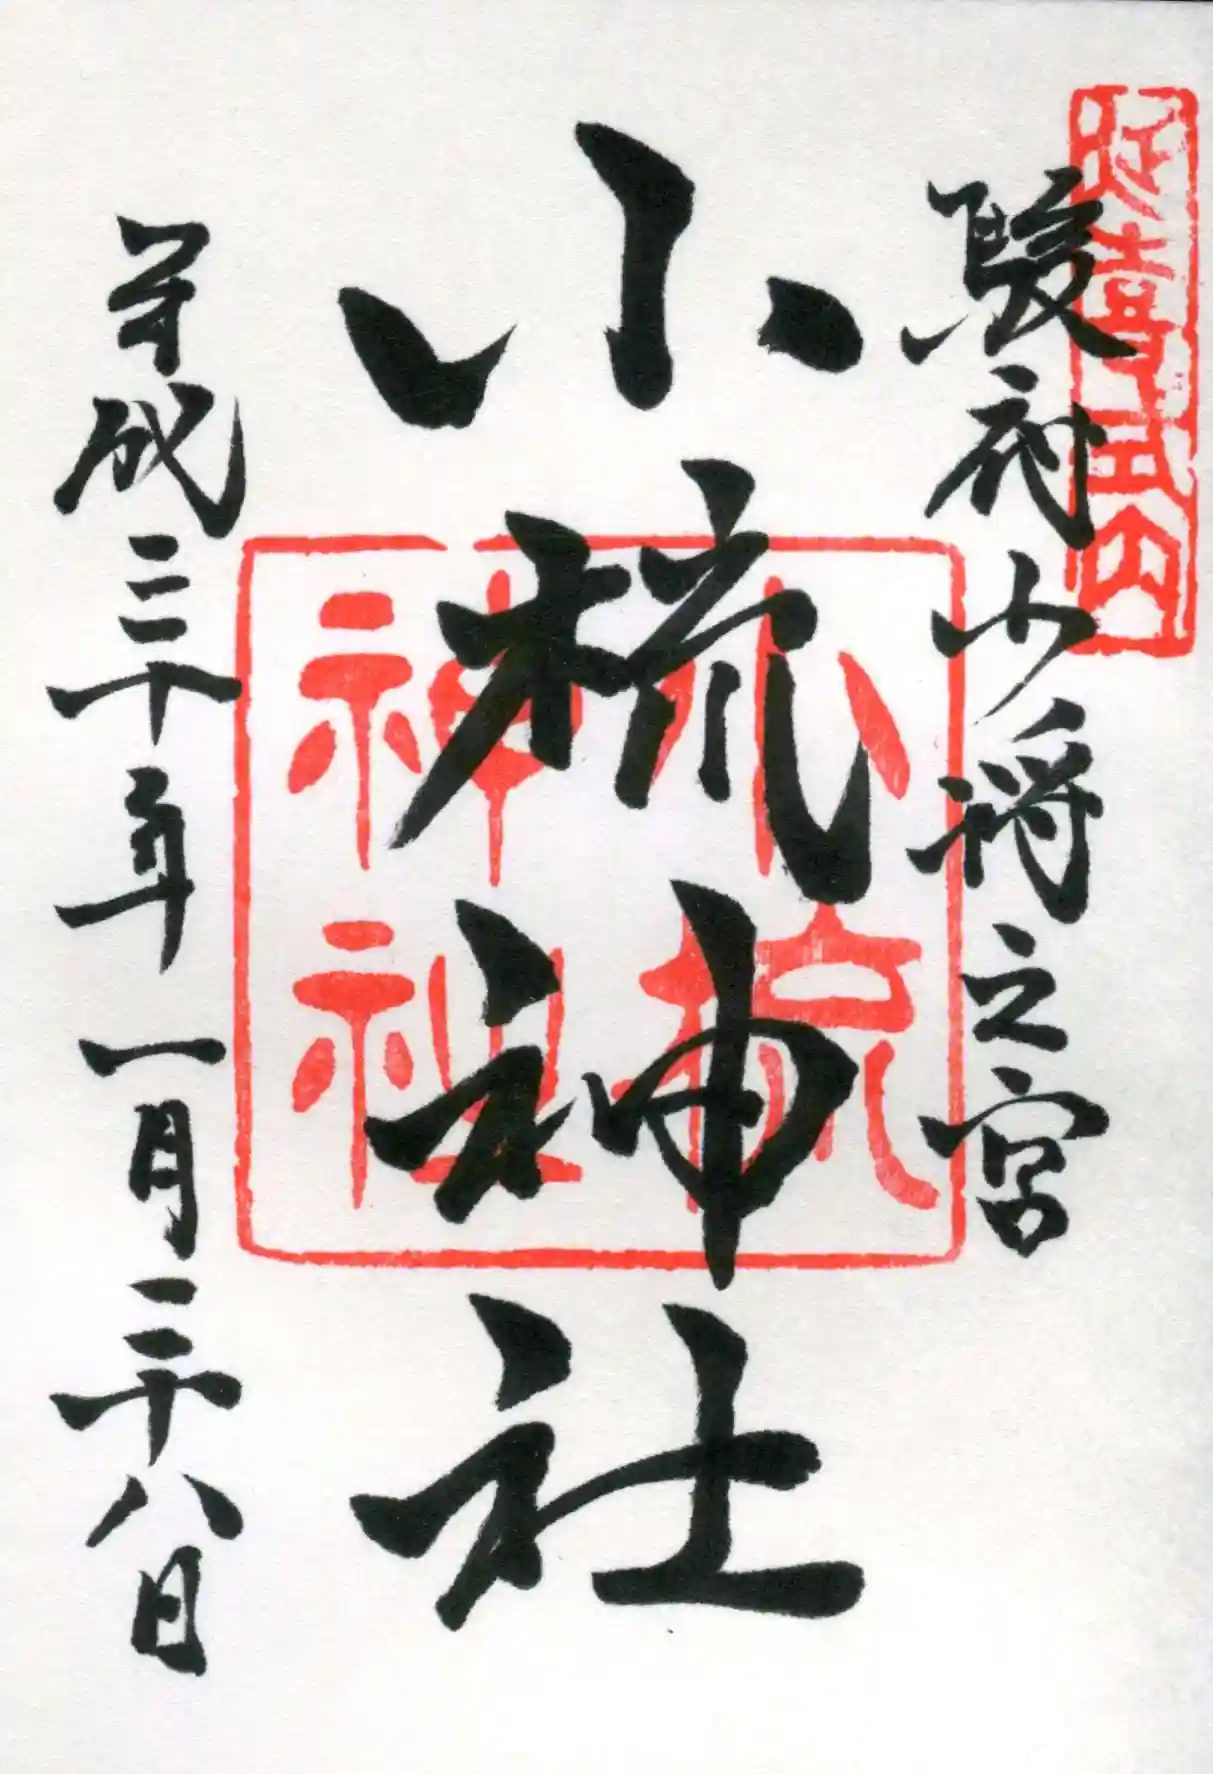 延喜式内
駿府少将之宮
小梳神社
小梳
神社
平成三十年一月二十八日